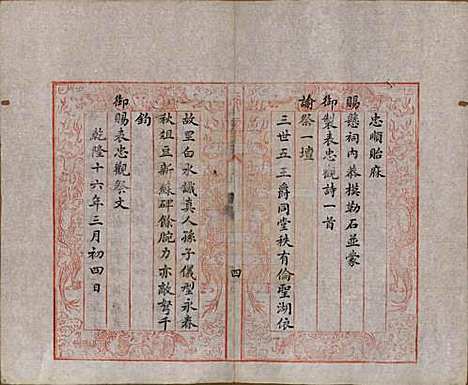 忠順貽庥
賜懸祠内恭摸勒石並蒙
御製表忠觀詩一首
諭祭一壇
三世五王爵同堂秩有倫聖湖依
故里白水識真人孫子儀型永春
秋俎豆新蘇碑餘腕力亦敵弩千
鈞
御賜表忠觀祭文
乾隆十六年三月初四日
四